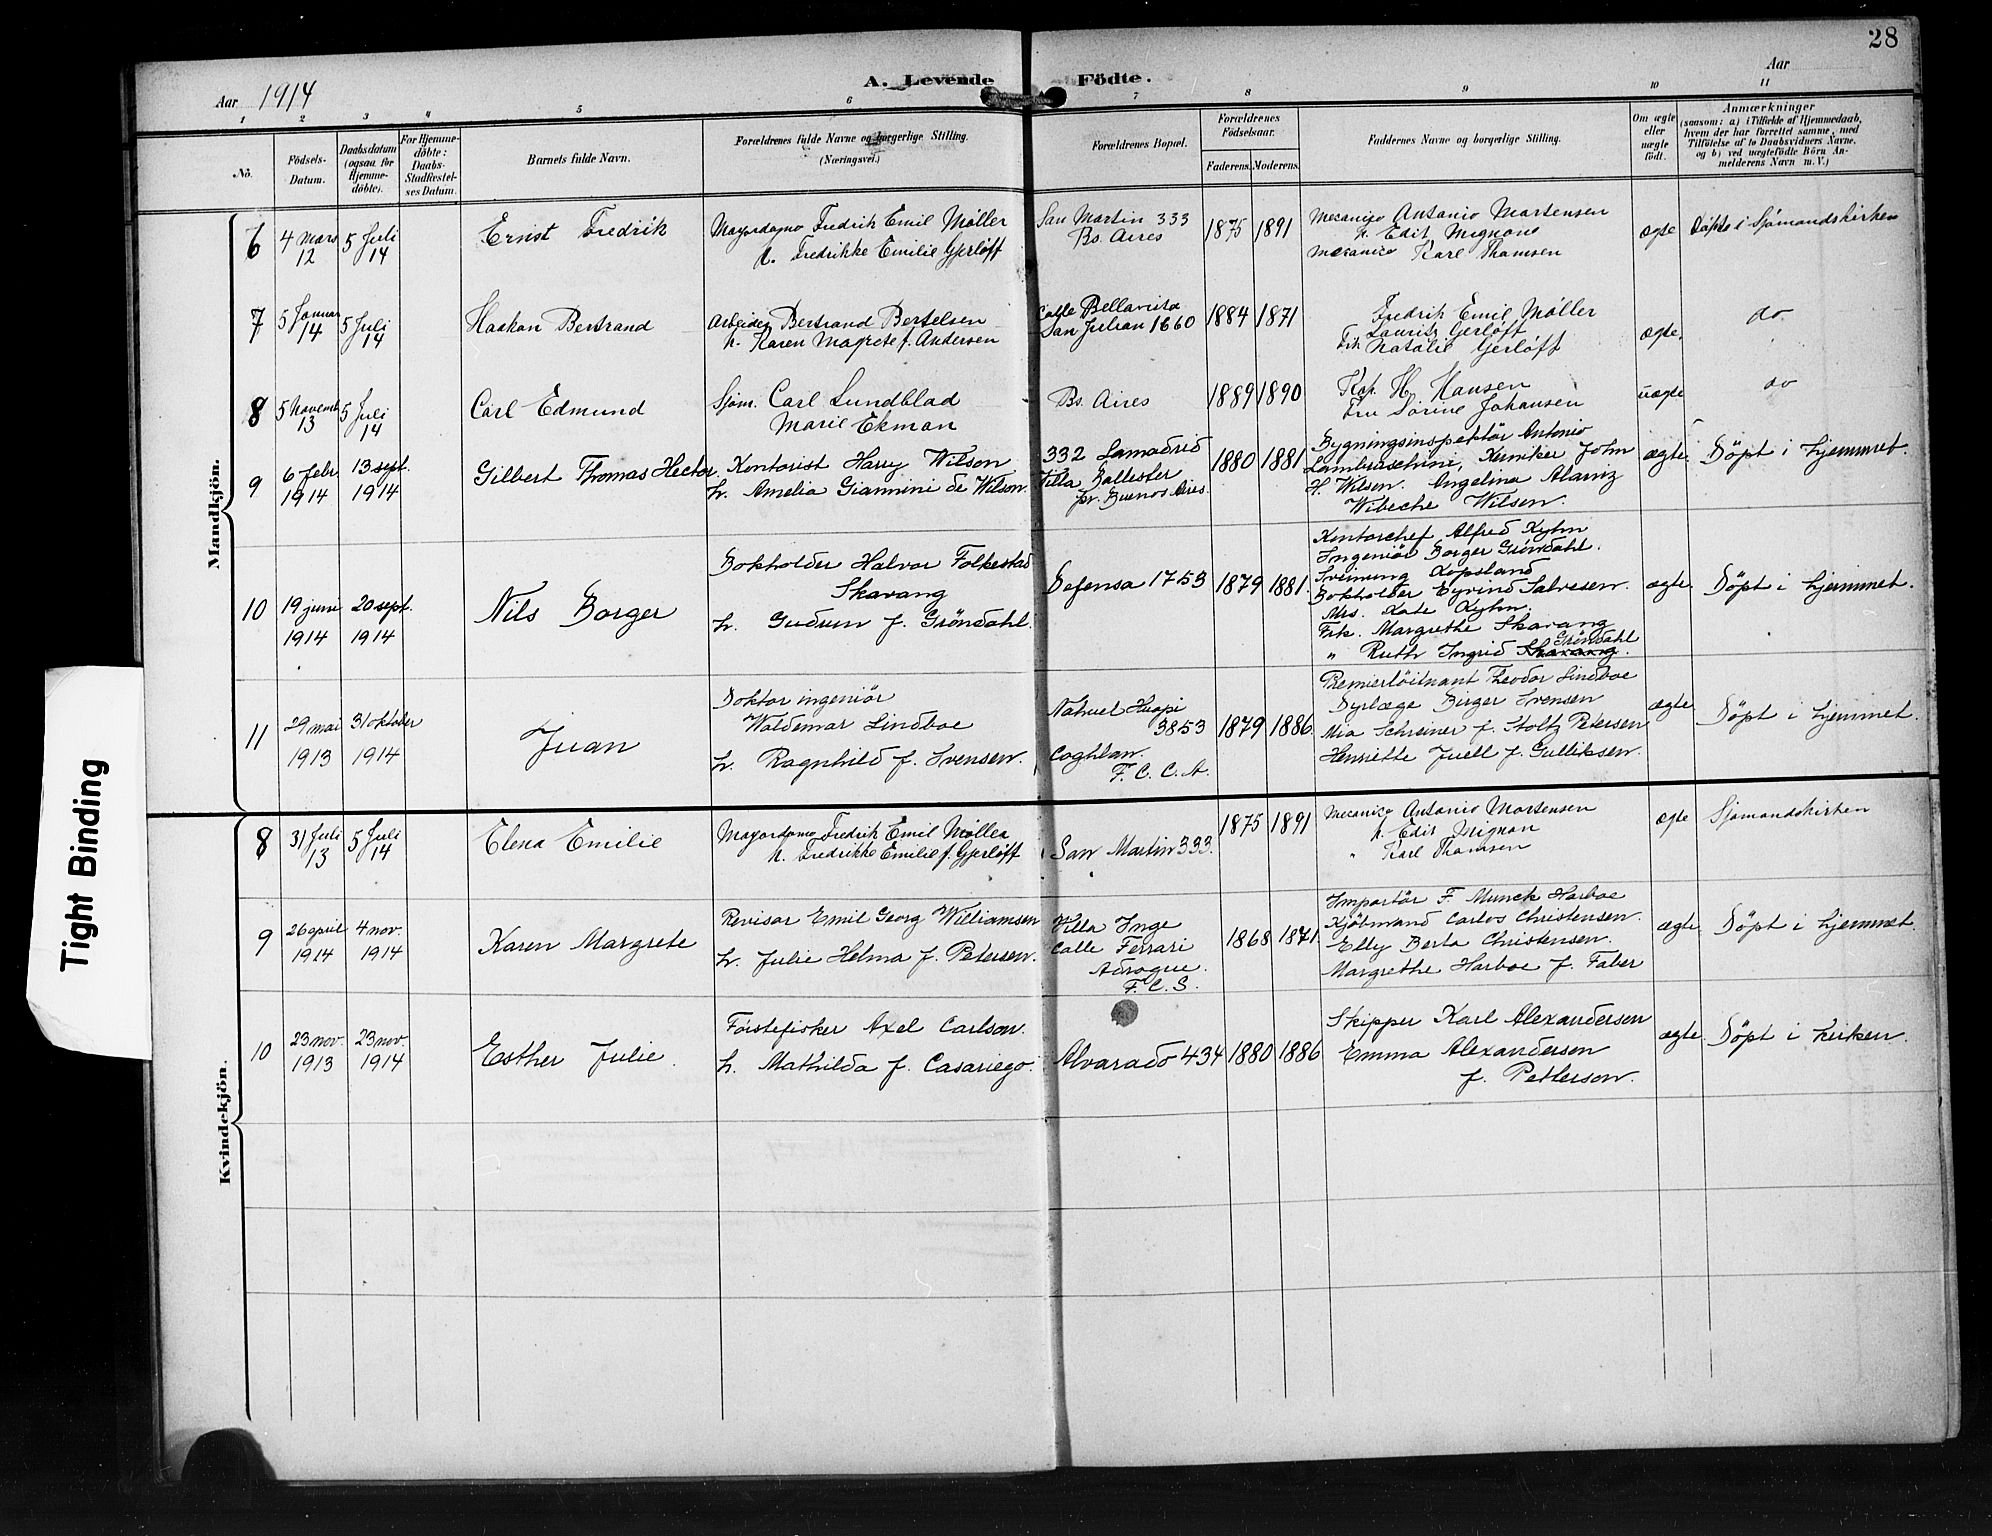 28
A. Levende Födte.
Aar 1914
Aar
1 2 3 4 5 6 7 8 9 10 11
No.
Födsels-
Datum.
Daabsdatum
(ogsaa for
Hjemme-
döbte).
For Hjemme-
döbte:
Daabs-
Stadfæstel-
ses Datum.
Barnets fulde Navn.
Forældrenes fulde Navne og borgerlige Stilling.
(Næringsvei.)
Forældrenes Bopæl.
Forældrenes
Födselsaar.
Faderens. Moderens.
Faddernes Navne og borgerlige Stilling.
Om ægte
eller
uægte
født.
Anmærkninger
(saasom: a) i Tilfælde af Hjemmedaab,
hvem der har forrettet samme, med
Tilföielse af to Daabsvidners Navne,
og b) ved uægtefödte Börn An-
melderens Navn m. V.)
Mandkjön.
6
4 Mars
12
5 Juli
14
Ernst Fredrik
Mayordomo Fredrik Emil Møller
h. Fredrikke Emilie Gjerløff
San Martin 333
Bs. Aires
1875 1891
Mecanico Antonio Mortensen
h. Edit Mignone
Mecanico Karl Thamsen
ægte
Döpt i Sjømandskirken
7
5 Januar
14
5 Juli
14
Haakon Bertrand
Arbeider Bertrand Bertelsen
h. Karen Magrete f. Andersen
Calle Bellavista
San Julian 1660
1884 1871
Fredrik Emil Møller
Lauritz Gerløff
Frk Natalie Gjerløff
ægte.
do.
8
5 Novemb
13
5 Juli
14
Carl Edmund
Sjøm. Carl Lundblad
Marie Ekman
Bs. Aires
1889 1890
Kap. H. Hansen
Fru Sorine Johansen
uægte
do
9
6 febr.
1914
13 sept.
1914
Gilbert Thomas Hector
Kontorist Harry Wilson
h. Amelia Giannini de Wilson.
332 Lamadrid
Villa Ballester
pr. Buenos Aires.
1880 1881
Bygningsinspektör Antonio
Lambruschini, Kemiker John
H. Wilson. Angelina Alaniz
Wibeche Wilson.
ægte.
Döpt i hjemmet.
10
19 juni
1914
20 sept.
1914
Nils Borger
Bokholder Halvor Folkestad
Skavang
h. Gudrun f. Gröndahl.
Defensa 1753
1879 1881.
Kontorchef Alfred Kyhn
Ingeniör Borger Gröndahl.
Sveinung Kopsland
Bokholder Eyvind Salvesen.
Mrs. Kate Kyhn.
Frk. Margrethe Skavang
Gröndahl
" Ruth Ingrid Skavang.
ægte
Döpt i hjemmet.
11
29 mai
1913
31 oktober
1914
Juan
Doktor ingeniör
Waldemar Lindboe
h. Ragnhild f. Svensen.
Nahuel Huapi
3853
Coghlan.
F. C. C. A.
1879 1886.
Premierlöitnant Theodor Lindboe
Dyrlæge Birger Svensen
Mia Schreiner f. Stoltz Petersen
Henriette Juell f. Gulliksen.
ægte.
Döpt i hjemmet.
Kvindekjön.
8
31 Juli
13
5 Juli
14
Elena Emilie
Mayordomo Fredrik Emil Møller
h. Fredrikke Emilie f. Gjerløff
San Martin 333.
1875 1891
Mecanico Antonio Mortensen
h. Edit Mignon
" Karl Thamsen
ægte
Sjömandskirken
9
26 april
1914
4 nov.
1914
Karen Margrete
Revisor Emil Georg Williamsen
h. Julie Helma f. Petersen.
Villa Inge
Calle Ferrari
Adrogue.
F. C. S.
1868 1871
Importör F. Munck Harboe
Kjöbmand Carlos Christensen.
Elly Berta Christensen.
Margrethe Harboe f. Faber
ægte
Döpt i hjemmet.
10
23 nov.
1913
23 nov.
1914
Esther Julie.
Förstefisker Axel Carlson.
h. Mathilda f. Casariego.
Alvarado 434
1880 1886
Skipper Karl Alexandersen
Emma Alexandersen
f. Petterson.
ægte.
Döpt i kirken.
Tight Binding